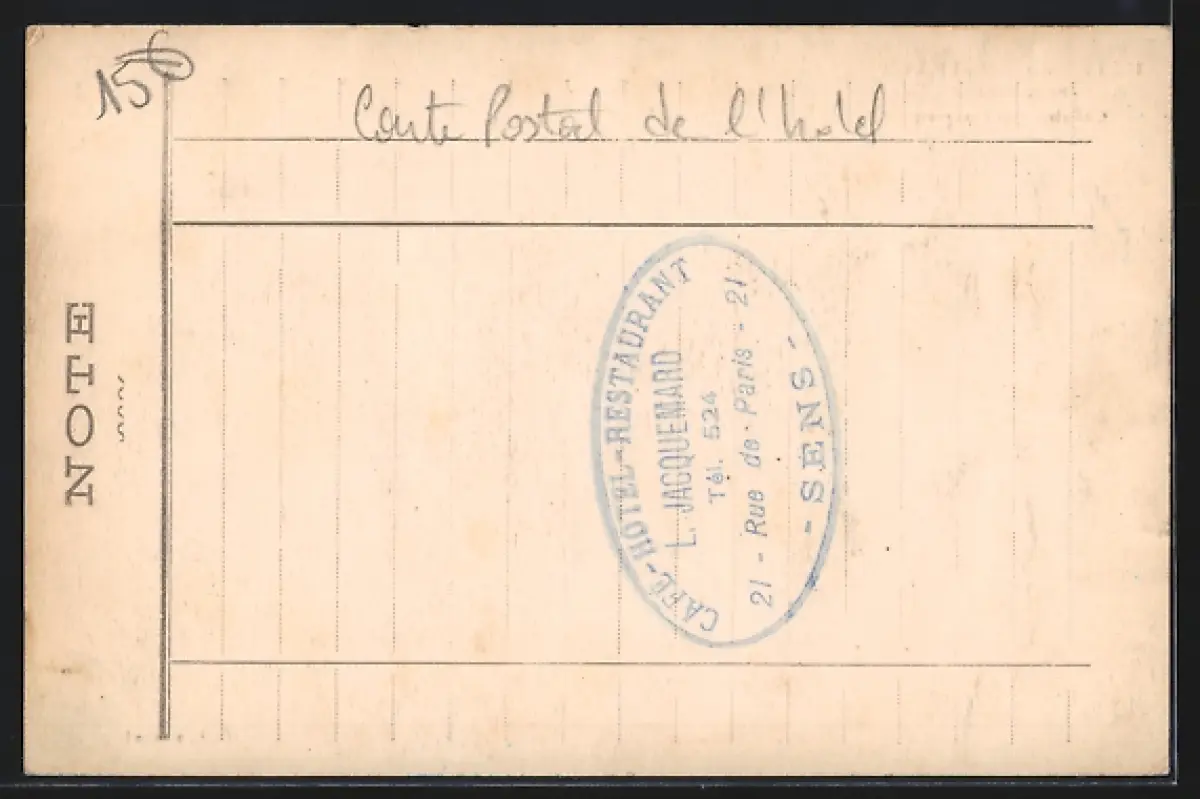 15€
Carte Postal de l'hotel
NOTE
CAFÉ-HÔTEL-RESTAURANT
L. JACQUEMARD
Tél. 524
21 - Rue de Paris - 21
- SENS -